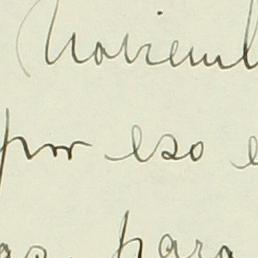 Noviem
por eso e
as, para